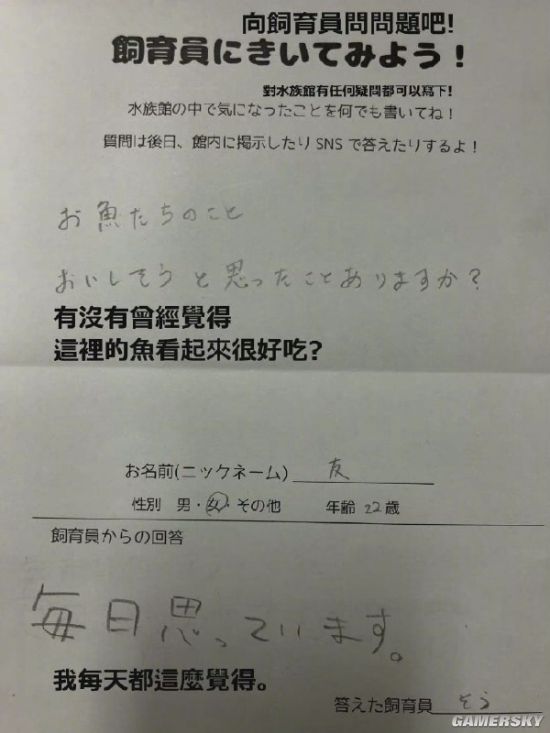 向飼育員問問題吧!
飼育員にきいてみよう！
對水族館有任何疑問都可以寫下!
水族館の中で気になったことを何でも書いてね！
質問は後日、館内に掲示したりSNSで答えたりするよ！
お魚たちのこと
おいしそうと思ったことありますか？
有沒有曾經覺得
這裡的魚看起來很好吃?
お名前(ニックネーム) 友
性別 男・女・その他 年齢 22 歳
飼育員からの回答
毎日思っています。
我每天都這麼覺得。
答えた飼育員 そう
GAMERSKY